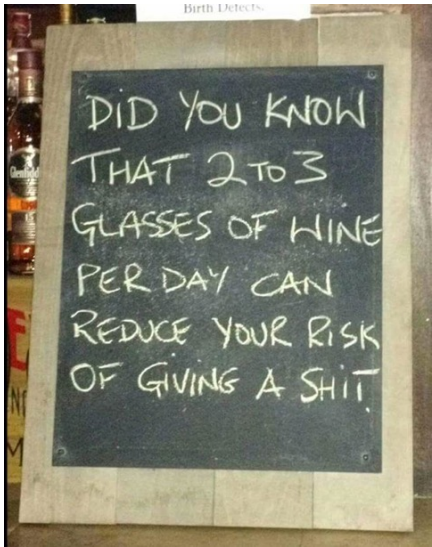 Birth Defects.
Glenfiddich
DID YOU KNOW
THAT 2 TO 3
GLASSES OF WINE
PER DAY CAN
REDUCE YOUR RISK
OF GIVING A SHIT.